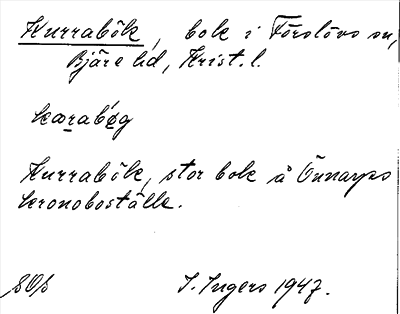 Kurrabök, bok i Förslövs sn,
Bjäre hd, Krist. l.
Kurrabök, stor bok å Önnarps
kronoboställe.
I. Ingers 1947.